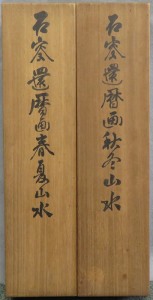 石峯還暦画秋冬山水
石峯還暦画春夏山水